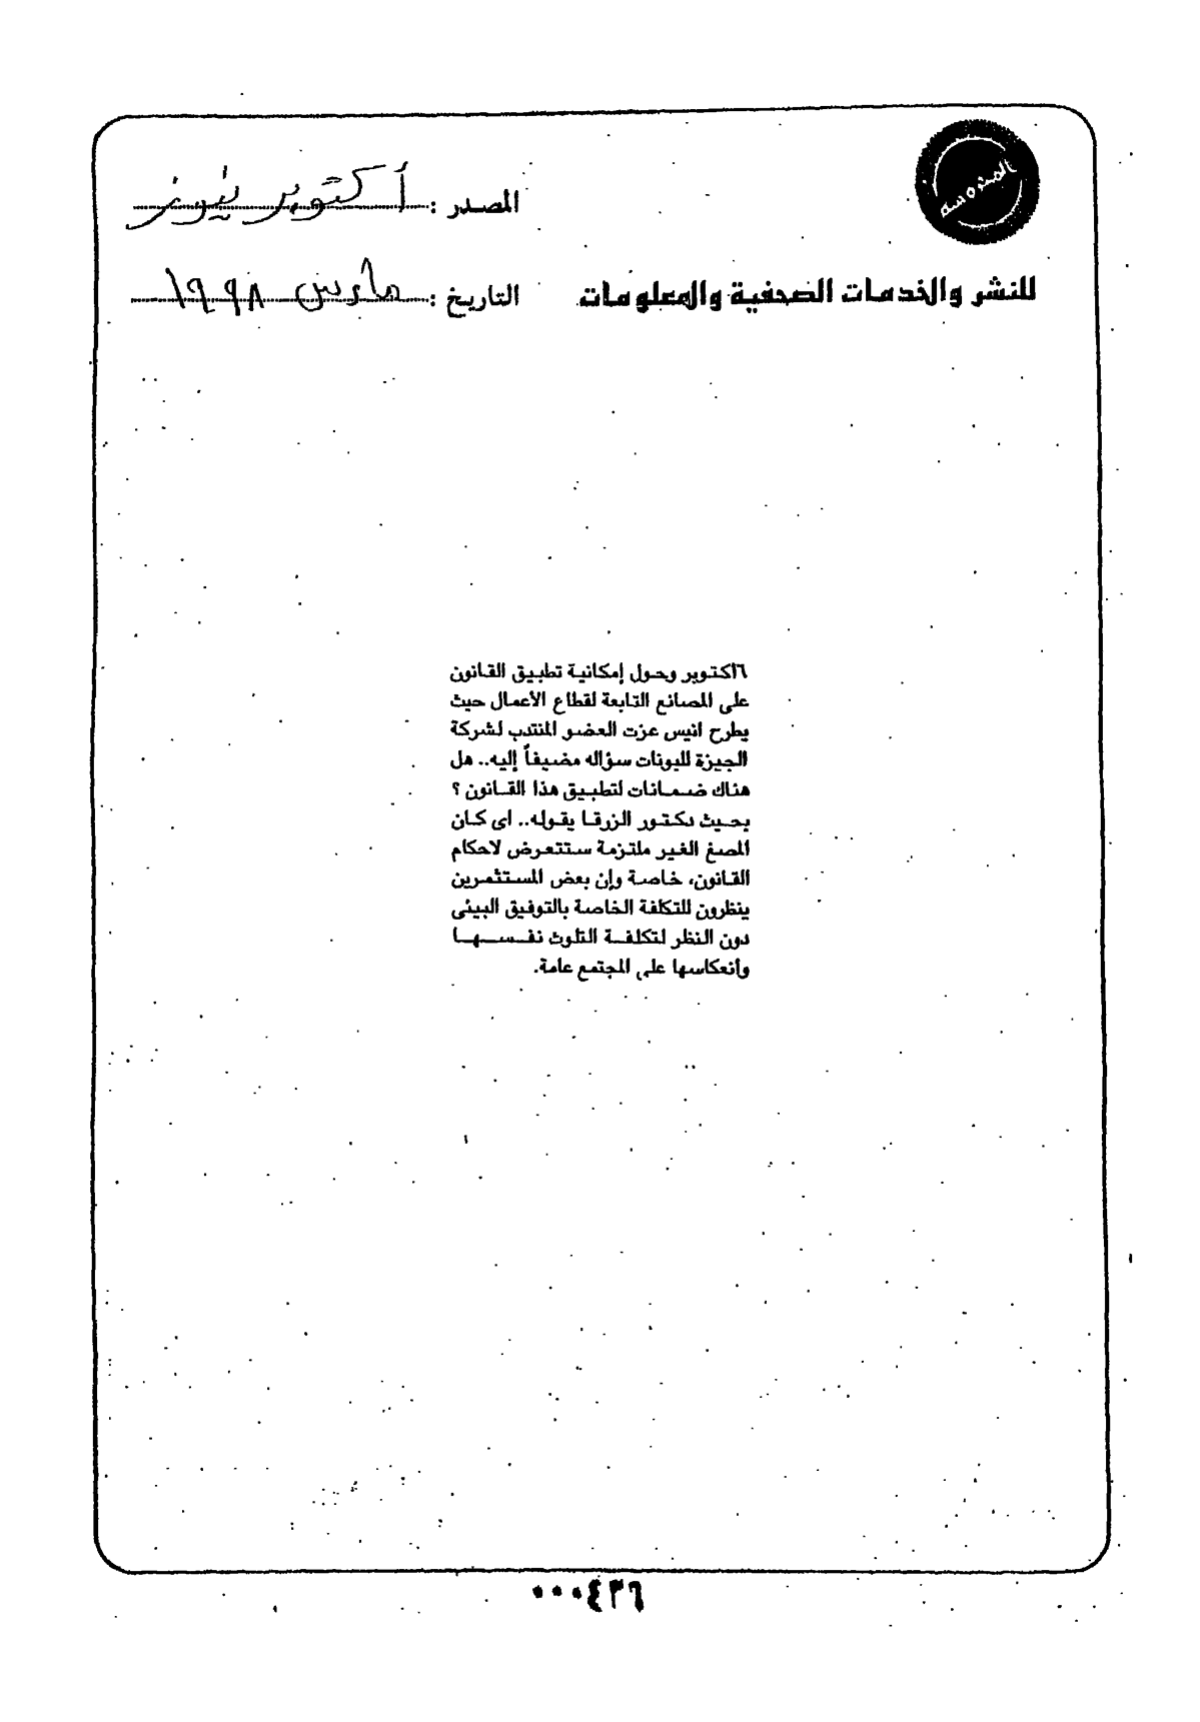 المصدر : أكتوبر نيوز
للنشر والخدمات الصحفية والمعلومات
التاريخ : مارس ١٩٩٨
٦اكتوبر وحول إمكانية تطبيق القانون
على المصانع التابعة لقطاع الأعمال حيث
يطرح انيس عزت العضو المنتدب لشركة
الجيزة للبونات سؤاله مضيفاً إليه.. هل
هناك ضمانات لتطبيق هذا القانون ؟
بحيث دكتور الزرقا يقوله.. اى كان
المصغ الغير ملتزمة ستتعرض لاحكام
القانون، خاصة وإن بعض المستثمرين
ينظرون للتكلفة الخاصة بالتوفيق البيئى
دون النظر لتكلفة التلوث نفسها
وأنعكاسها على المجتمع عامة.
٠٠٠٤٣٦